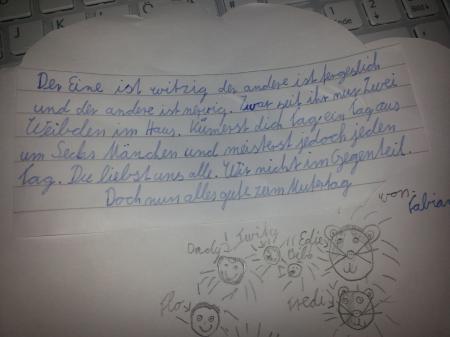 Der Eine ist witzig der andere ist fergeslich
und der andere ist nervig. Zwar seit ihr nur Zwei
Weibden im Haus. Kümerst dich Tag ein Tag aus
um Secks Mänchen und meisterst jedoch jeden
Tag. Du liebst uns alle. Wir nicht im Gegenteil.
Doch nun alles gute zum Mutertag
von:
Fabian
Dady
Twity
Edie
Bebo
Flo
Fredi
Ende